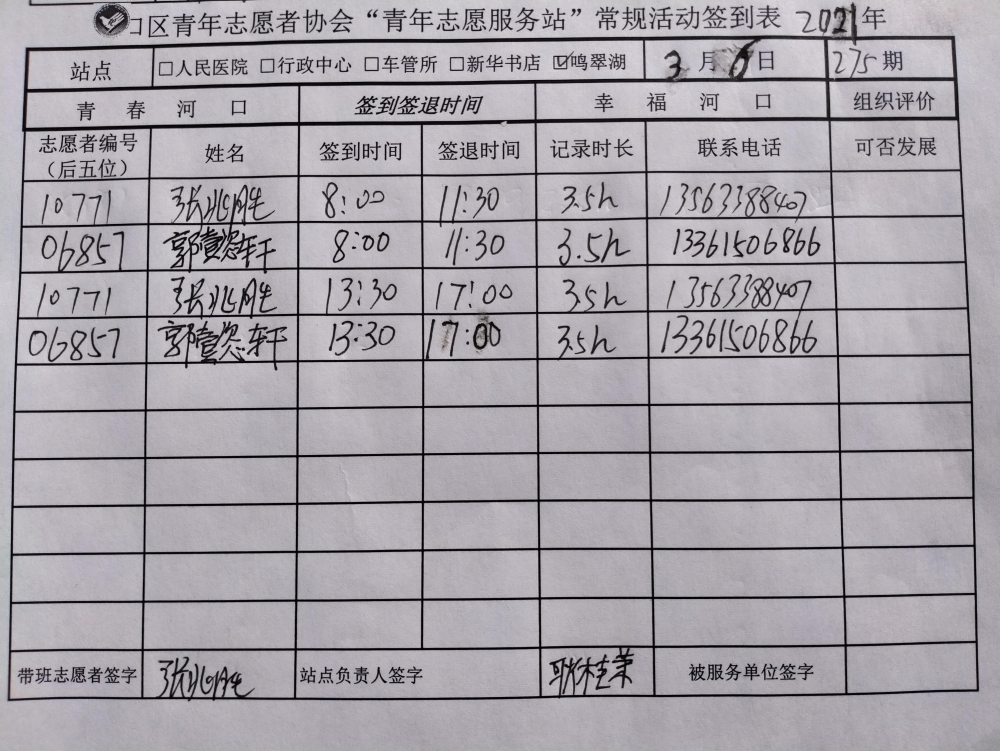 口区青年志愿者协会“青年志愿服务站”常规活动签到表 2021年
站点 □人民医院 □行政中心 □车管所 □新华书店 ☑鸣翠湖 3月6日 275期
青春河口 签到签退时间 幸福河口 组织评价
志愿者编号（后五位） 姓名 签到时间 签退时间 记录时长 联系电话 可否发展
10771 张兆胜 8:00 11:30 3.5h 13563388407
06857 郭懿轩 8:00 11:30 3.5h 13361506866
10771 张兆胜 13:30 17:00 3.5h 13563388407
06857 郭懿轩 13:30 17:00 3.5h 13361506866
带班志愿者签字 张兆胜 站点负责人签字 耿桂荣 被服务单位签字